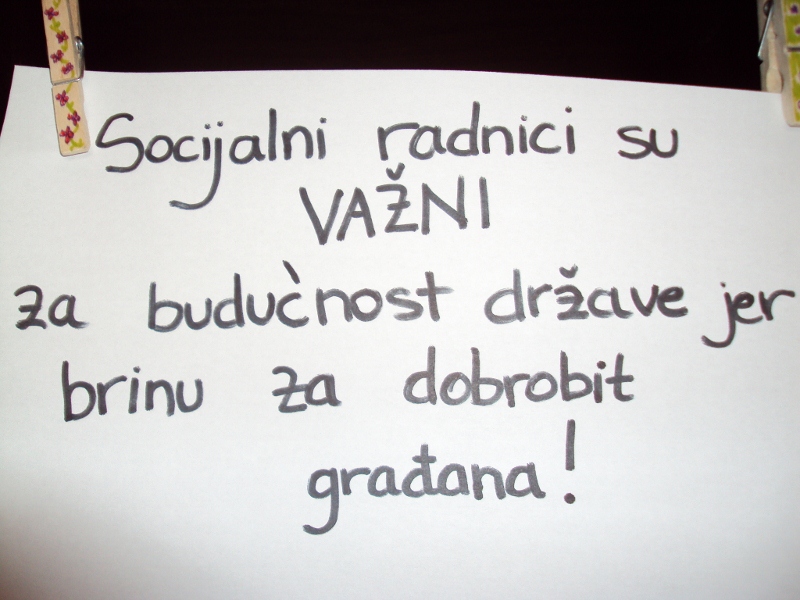 Socijalni radnici su
VAŽNI
za budućnost države jer
brinu za dobrobit
građana!